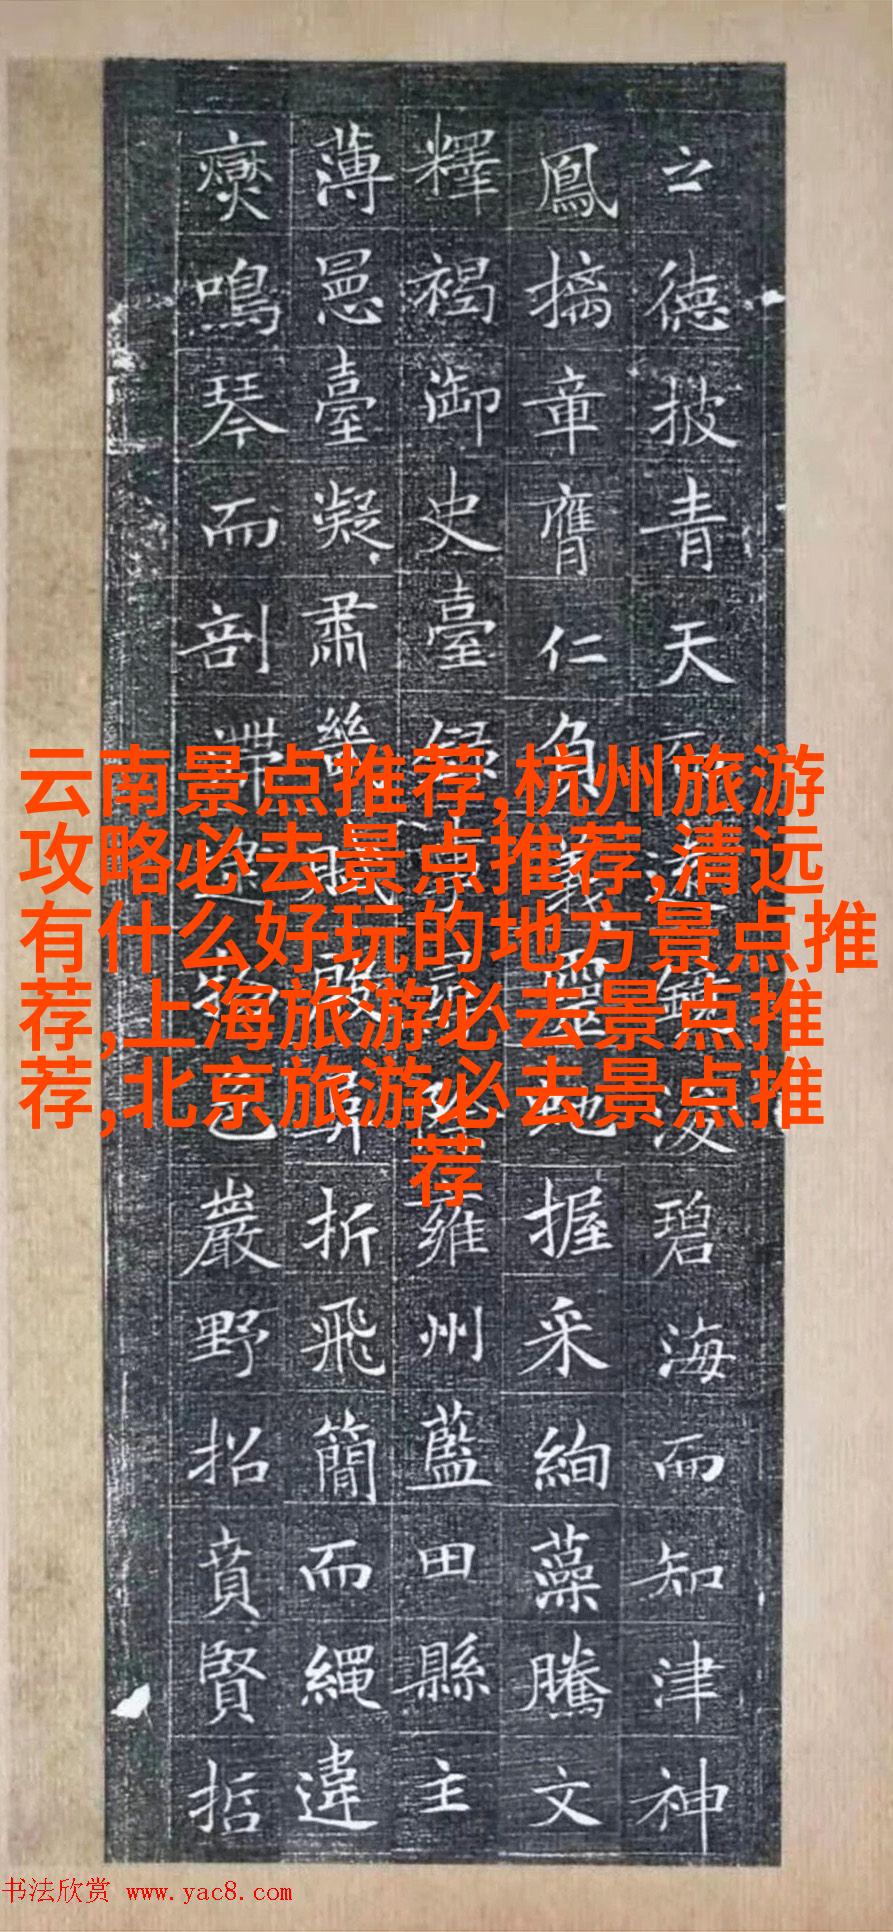 云南景点推荐,杭州旅游
攻略必去景点推荐,清远
有什么好玩的地方景点推
荐,上海旅游必去景点推
荐,北京旅游必去景点推
荐
之德披青天鏡碧海而知津神
鳳摛章膺仁負義地握采絢藻騰文
釋褐御史臺事州藍田縣主
薄臺凝肅職折飛簡而繩違
鳴琴而剖滯巖野招賁賢哲
书法欣赏 www.yac8.com